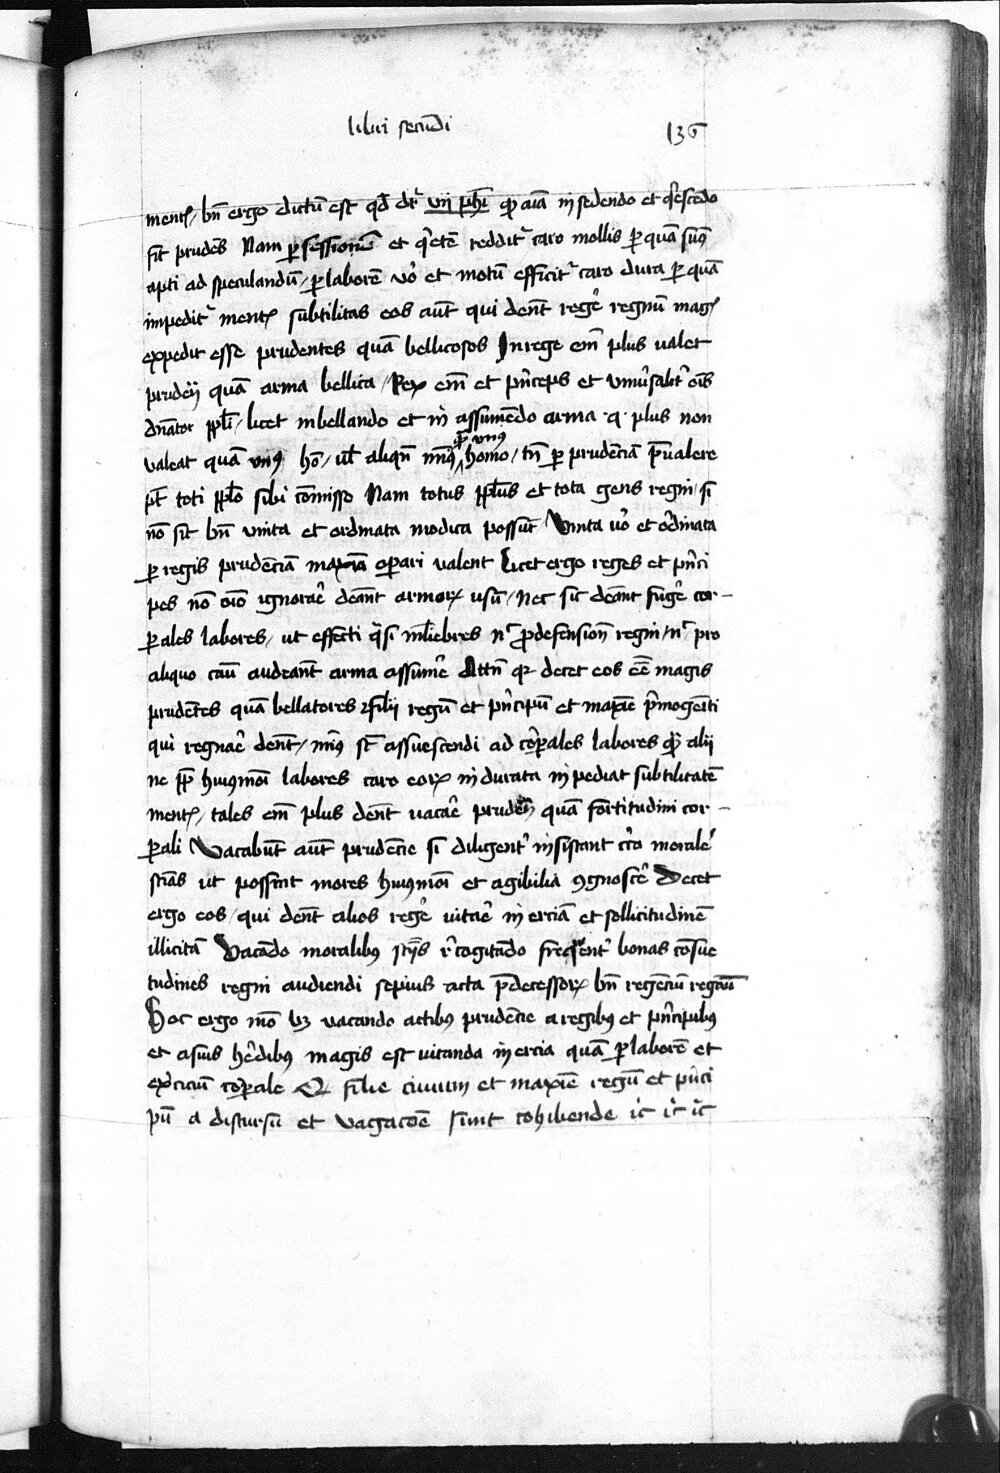 libri secūdi 136
mentꝭ / bn̄ ergo dictū est qd̄ dr̄ vij ph̄i ꝙ aīa in sedendo et q̇escēdo
fit prudēs Nam ꝑ sessionem et q̇etē redditᷣ caro mollis ꝑ quā sum9
apti ad speculandū / ꝑ laborē vo᷑ et motū efficitᷣ caro dura ꝑ quā
impeditᷣ mentꝭ subtilitas eos aūt qui dēnt rege᷑ regnū magꝭ
expedit esse prudentes quā bellicosos In rege em̄ plus valet
quā arma bellica / Rex em̄ et pn̄ceps et vniu᷑salitᷣ oīs
dn̄ator ppl̄i / licet in bellando et in assumēdo arma plus non
valeat quā vn9 hō / ul̓ aliqn̄ min9 ꝙ̄ vn9 homo / tn̄ ꝑ prudēciā p̄ualere
pt̄ toti ppl̄o sibi cōmisso Nam totus ppl̄us et tota gens regni / si
nō sit bn̄ vnita et ordinata modica possūt Vnita vo᷑ et ordinata
ꝑ regis prudēciā maxīa oꝑari valent Licet ergo reges et pn̄ci
pes nō oīo ignorare᷑ dēant armoꝝ usū / Nec sic dēant fuge᷑ cor-
ꝑales labores / ut effecti q̄si muliebres nᷣ ꝓ defensiōn regni / nᷣ pro
aliquo cāu audeant arma assume᷑ Attn̄ qꝛ decet eos eē magis
prudētes quā bellatores filij regū et pn̄cipū et maxīe p̄mogēiti
qui regnare᷑ dēnt / min9 sūt assuescendi ad corꝑales labores ꝙ̄ alij
ne ꝓp̄ hui9mōi labores caro eoꝝ indurata inpediat subtilitatē
mentꝭ / tales em̄ plus dēnt vacare᷑ quā fortitudini cor-
ꝑali Vacabūt aūt prudēcie si diligentᷣ insistant cr̄ca morale᷑
sciās ut possint mores hui9mōi et agibilia ꝯgnosce᷑ Decet
ergo eos / qui dēnt alios rege᷑ vitare᷑ in erciā et sollicitudinē
illicitā Vacādo moralib9 sciēs r᷑cogitādo freq̄entᷣ bonas cōsue
tudines regni audiendi sepius acta p̄decessoꝝ bn̄ regēciū regnū
Hoc ergo mō vꝫ vacando actib9 prudēcie a regib9 et pn̄cipib9
et a suis he᷑dib9 magis est vitanda in ercia quā ꝑ laborē et
exᷣciciū corꝑale Q filie ciuium et maxīe regū et pn̄ci
pū a discursu et vagacōe sunt cohibende ic̄ ic̄ ic̄